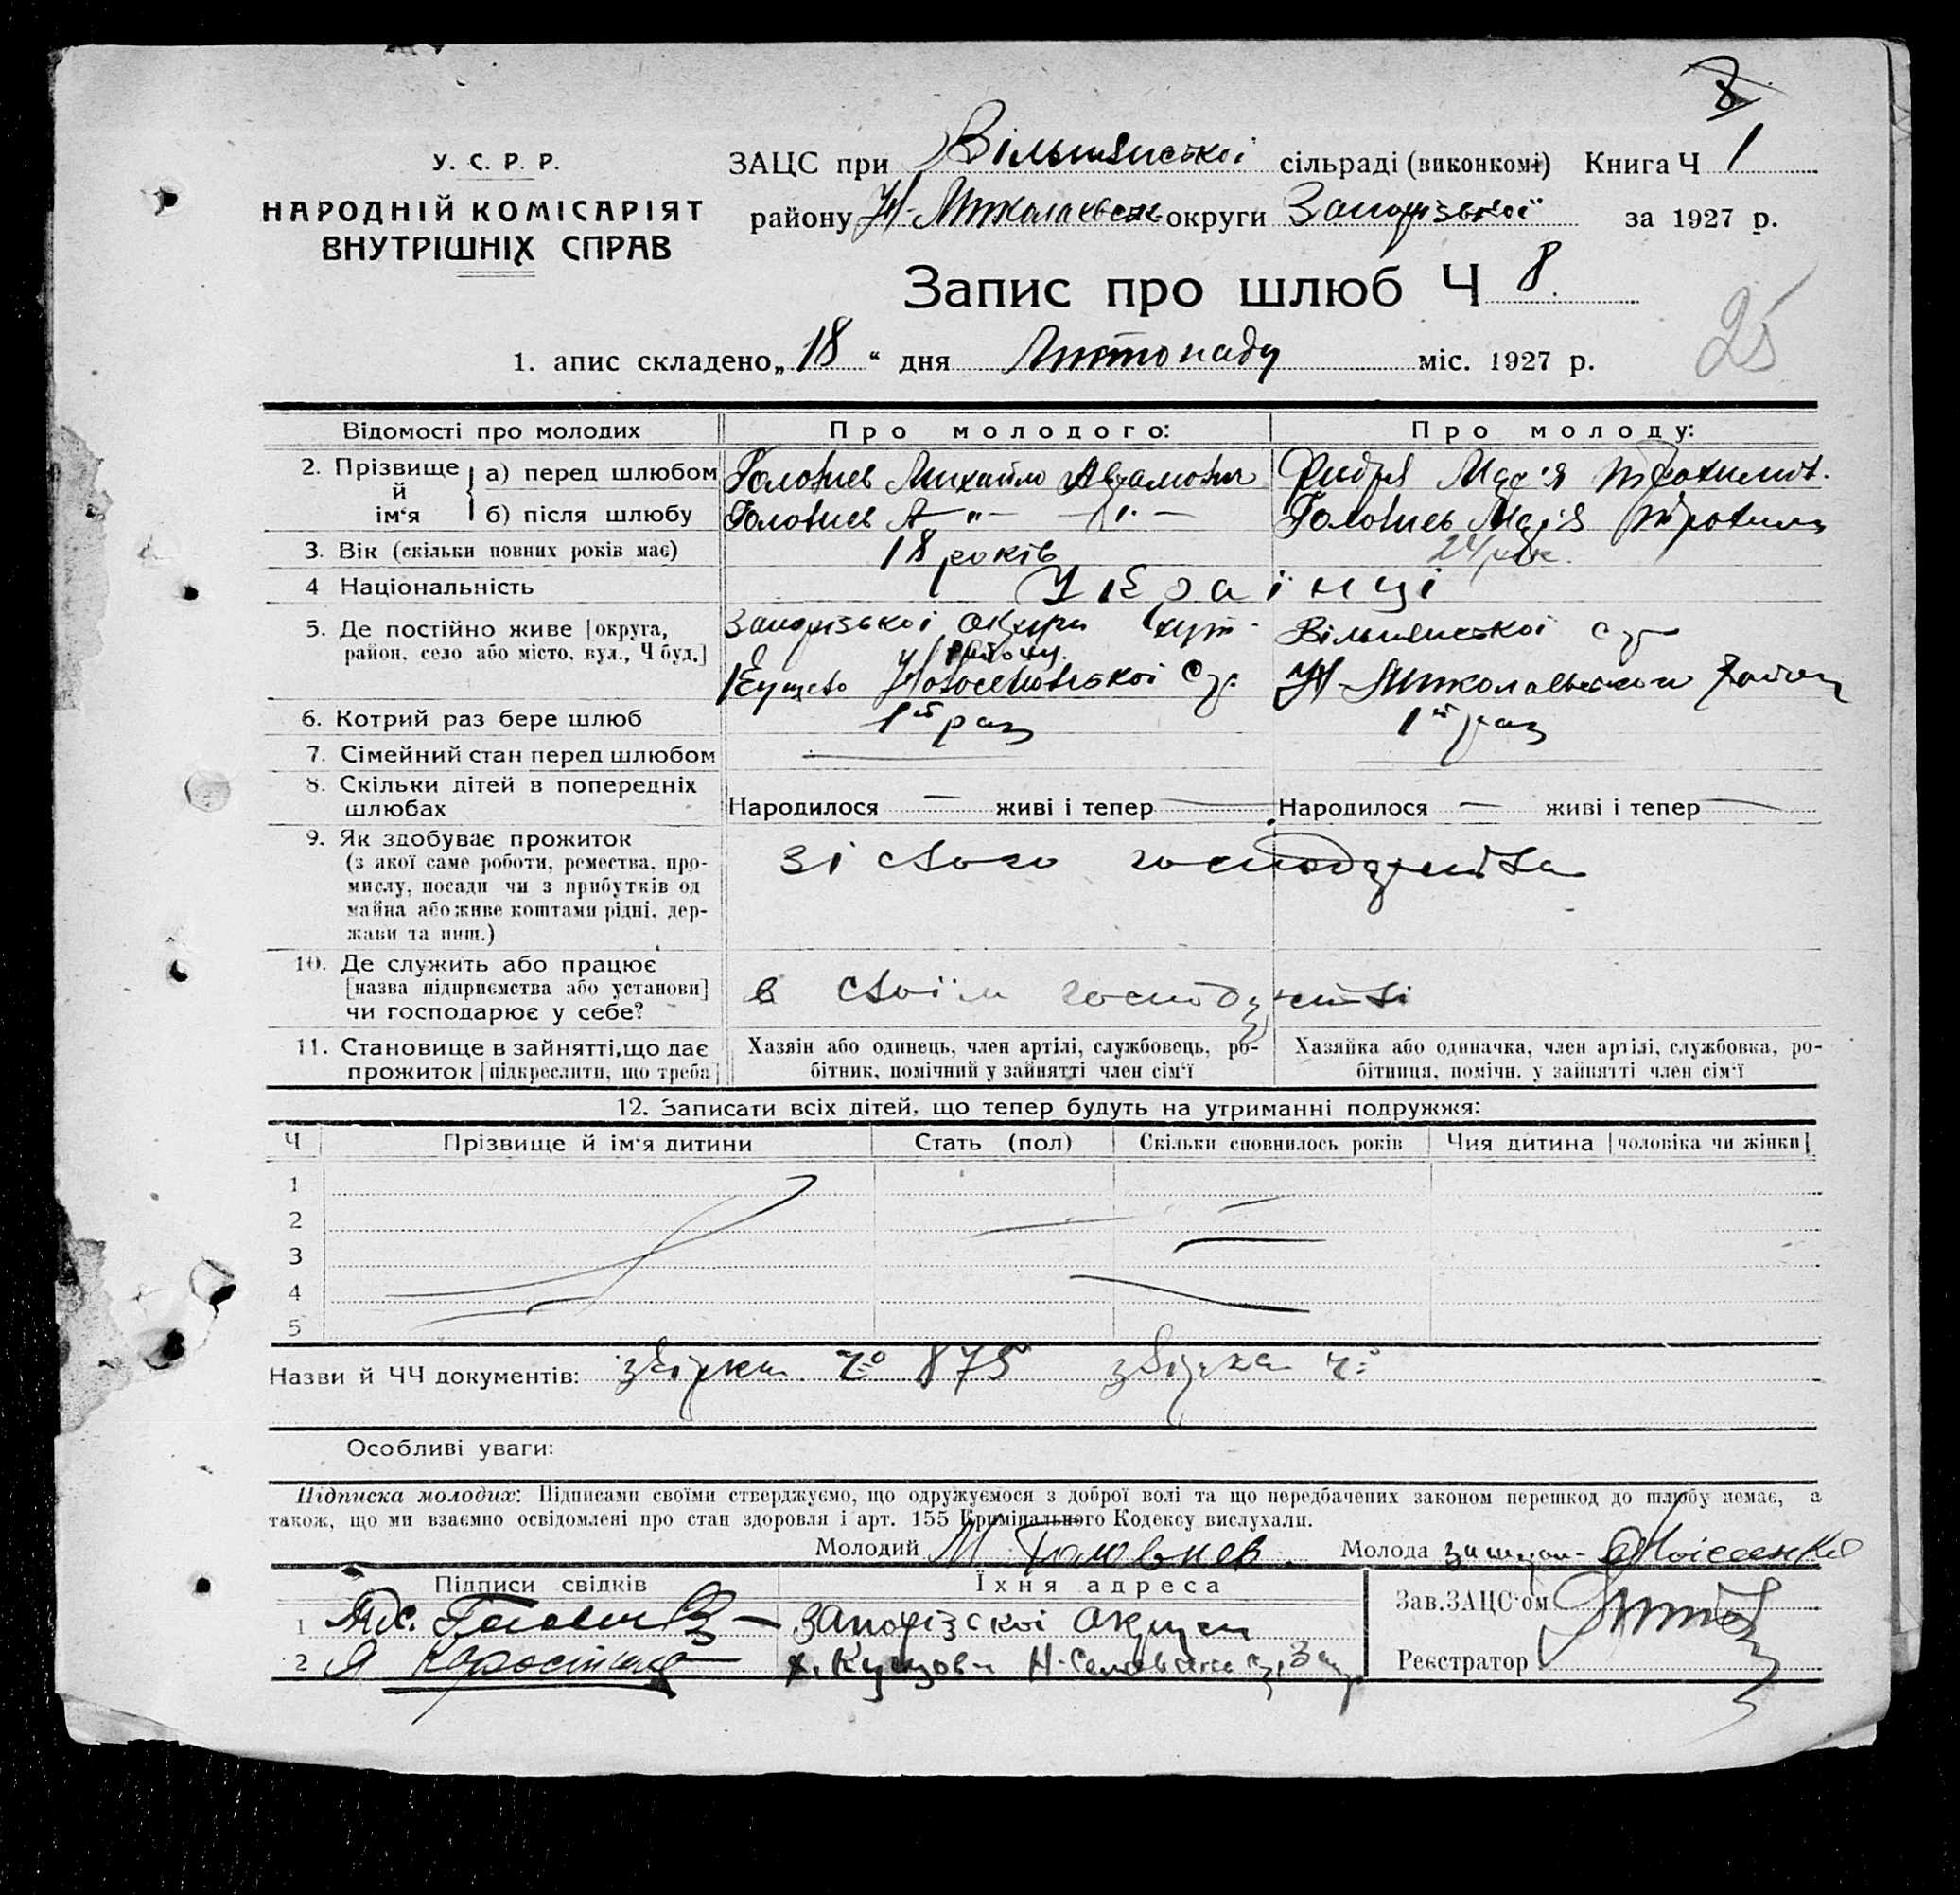 У. С. Р. Р.
НАРОДНІЙ КОМІСАРІЯТ
ВНУТРІШНІХ СПРАВ
ЗАЦС при Вільшянської сільраді (виконкомі) Книга Ч 1
району Н-Миколаевськ округи Запорізької за 1927 р.
Запис про шлюб Ч 8.
25
1. апис складено „18“ дня Листопаду міс. 1927 р.
Відомості про молодих Про молодого: Про молоду:
2. Прізвище й ім‘я а) перед шлюбом Головнев Михайло Аврамович Марія
б) після шлюбу Головнев — „ — — „ — Головнев Марія
3. Вік (скільки повних років має) 18 років 24 рок.
4 Національність Українці
5. Де постійно живе [округа, район, село або місто, вул., Ч буд.] Запорізької округи хут. Вільшянської с/р
району
Кущево Новоселовської с/р. Н-Миколаевського району
6. Котрий раз бере шлюб 1й раз 1й раз
7. Сімейний стан перед шлюбом
8. Скільки дітей в попередніх шлюбах Народилося — живі і тепер — Народилося — живі і тепер —
9. Як здобуває прожиток зі свого господарства
(з якої саме роботи, ремества, про-
мислу, посади чи з прибутків од
майна або живе коштами рідні, дер-
жави та инш.)
10. Де служить або працює
[назва підприємства або установи] в своїм господарстві
чи господарює у себе?
11. Становище в зайнятті, що дає прожиток [підкреслити, що треба] Хазяін або одинець, член артілі, службовець, ро-бітник, помічний у зайнятті член сім‘ї Хазяйка або одиначка, член артілі, службовка, ро-бітниця, помічн. у зайнятті член сім‘ї
12. Записати всіх дітей, що тепер будуть на утриманні подружжя:
Ч Прізвище й ім‘я дитини Стать (пол) Скільки сповнилось років Чия дитина [чоловіка чи жінки]
1
2
3
4
5
Назви й ЧЧ документів: звірка Ч° 875 звірка Ч°
Особливі уваги:
Підписка молодих: Підписами своїми стверджуємо, що одружуємося з доброї волі та що передбачених законом перешкод до шлюбу немає, а
також, що ми взаємно освідомлені про стан здоровля і арт. 155 Кримінального Кодексу вислухали.
Молодий М Головнев. Молода Моісеенко
Підписи свідків Їхня адреса Зав. ЗАЦС‘ом
1 Запорізскоі округи
2 Я Коростіна х. Кущови Реєстратор